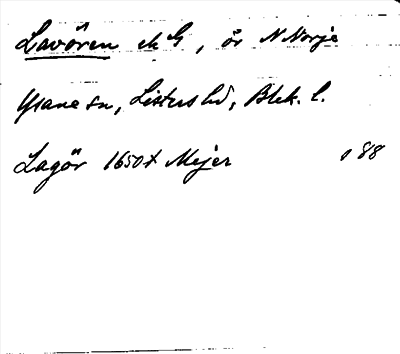 Lavören ek G, ör N Norje
Ysane sn, Listers hd, Blek. l.
Lagör 1650t Mejer 188